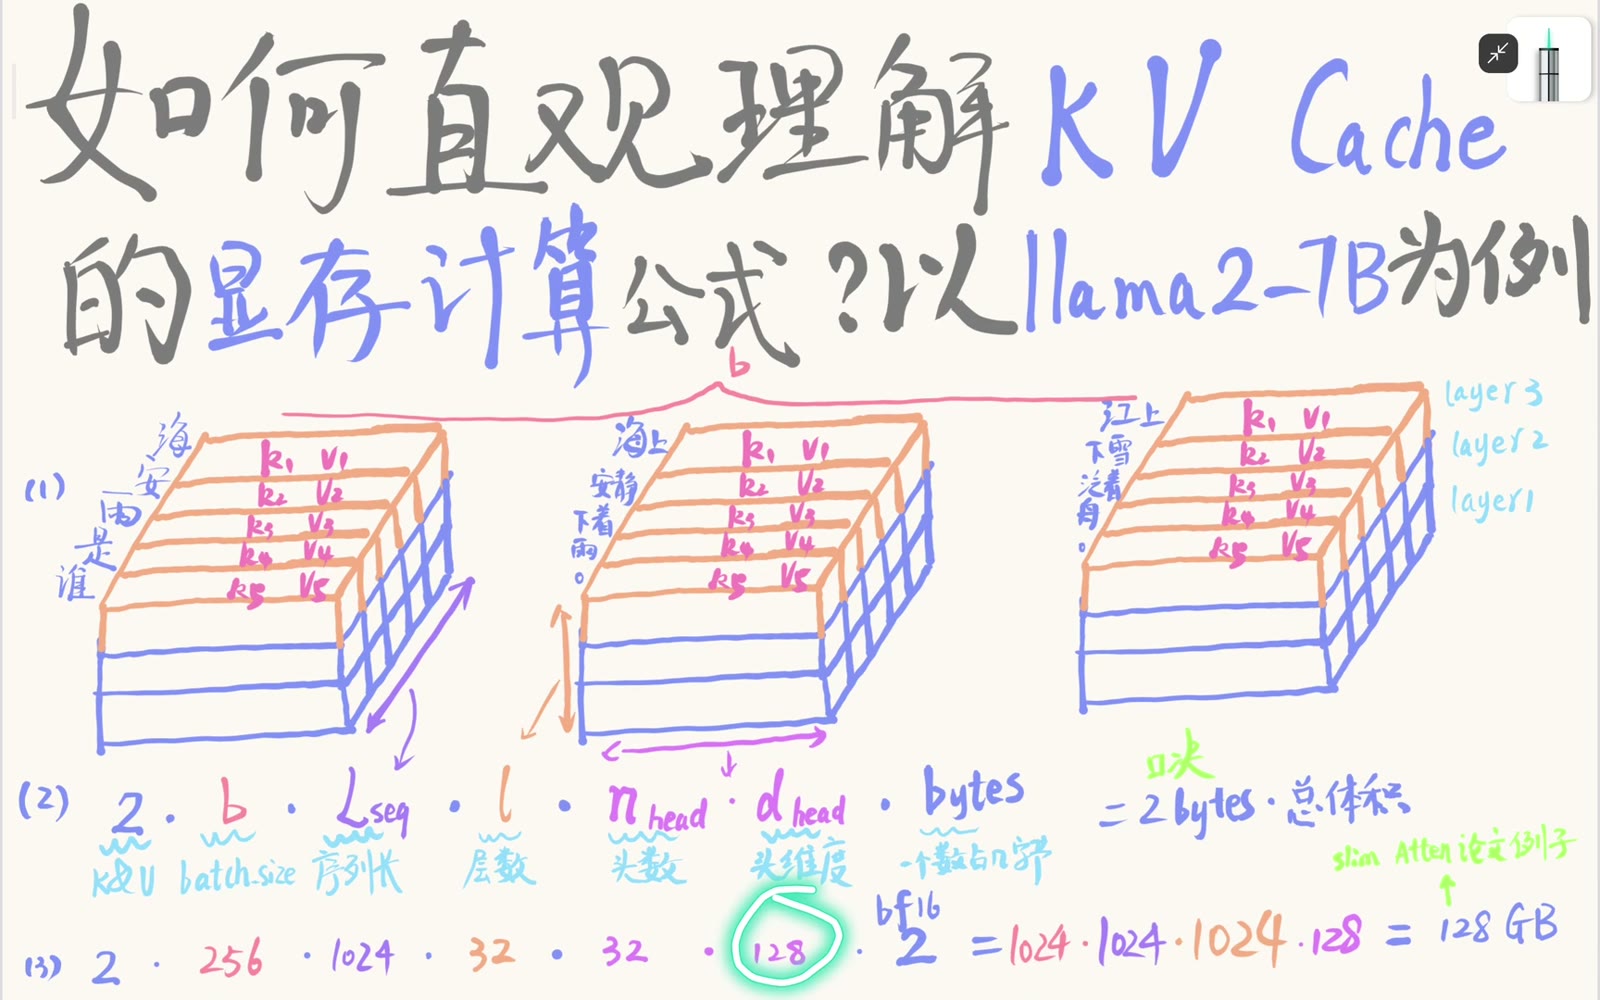 如何直观理解 KV Cache
的显存计算公式?以llama2-7B为例
b
(1)
海
安
雨
是
谁
k1 V1
k2 V2
k3 V3
k4 V4
k5 V5
海上
安静
下着
雨
。
k1 V1
k2 V2
k3 V3
k4 V4
k5 V5
江上
下雪
泛着
舟
。
k1 V1
k2 V2
k3 V3
k4 V4
k5 V5
layer 3
layer 2
layer 1
(2) 2 · b · Lseq · l · n head · d head · bytes = 2 bytes · 总体积
口诀
K&V batch_size 序列长 层数 头数 头维度 一个数占n字节
slim Atten 论文例子
bf16
(3) 2 · 256 · 1024 · 32 · 32 · 128 · 2 = 1024 · 1024 · 1024 · 128 = 128 GB